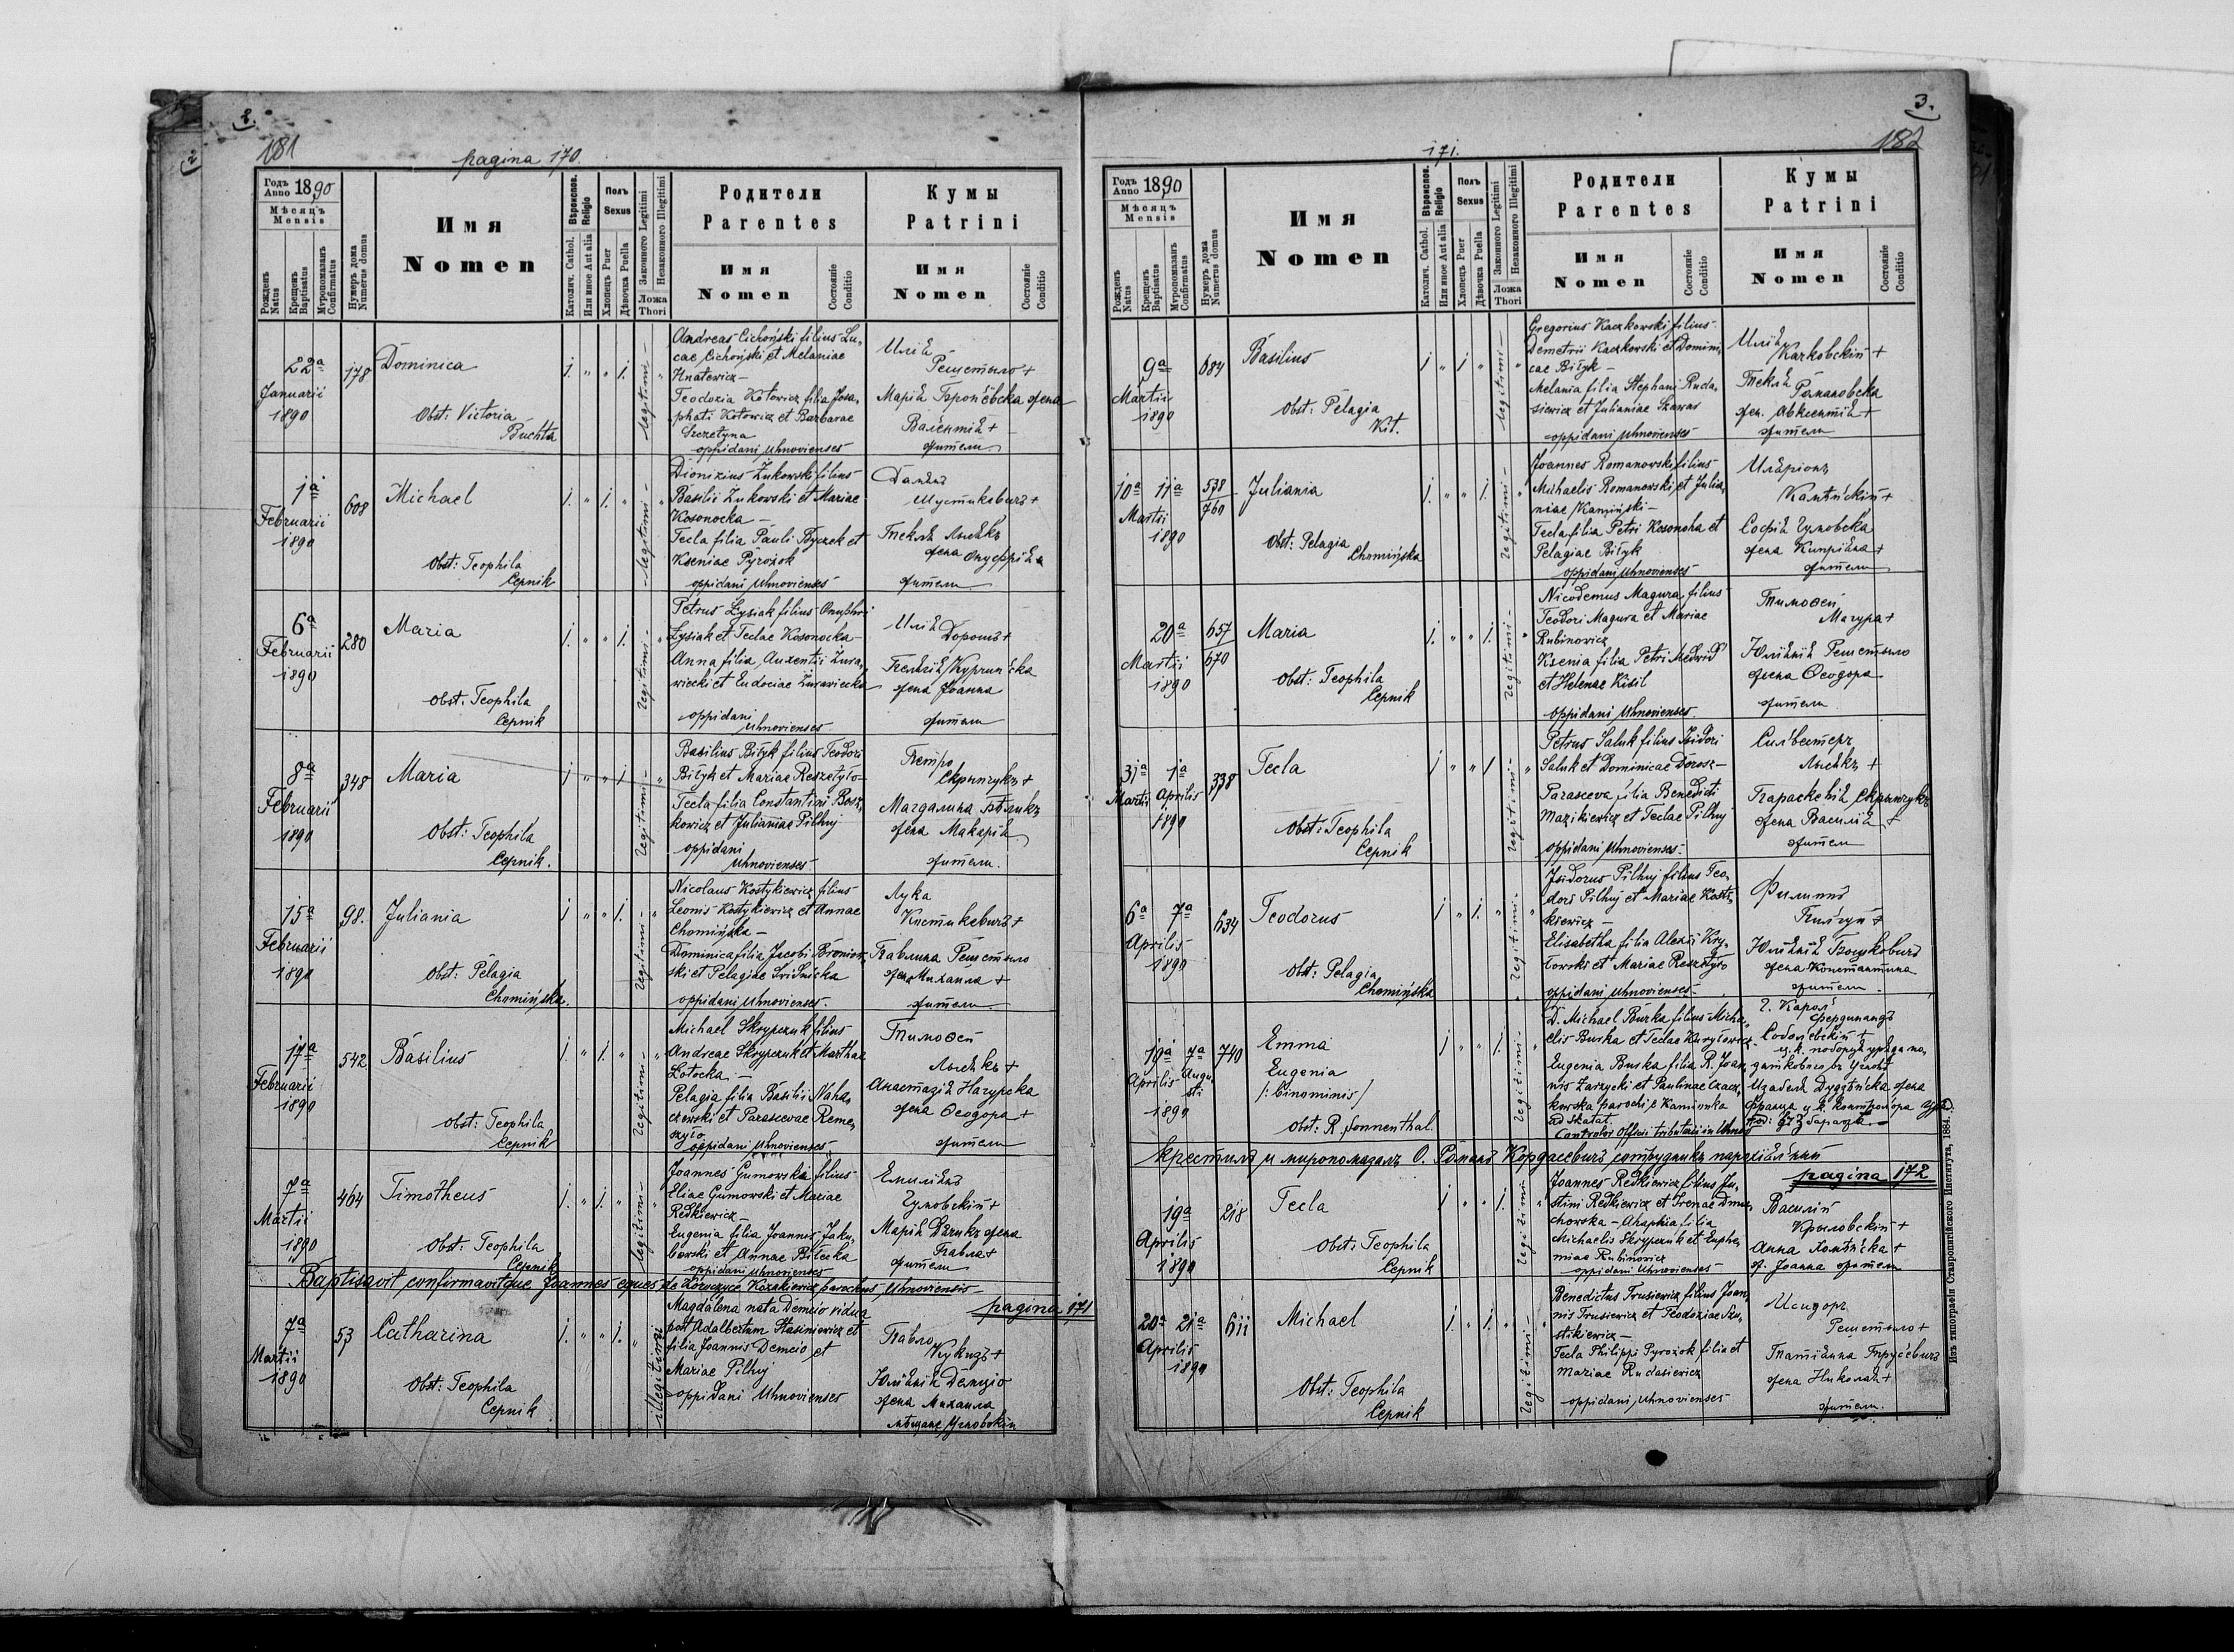 2.
181
pagina 170.
Годъ Anno 1890
Мѣсяцъ Mensis
Рожденъ Natus
Крещенъ Baptisatus
Мѵропомазанъ Confirmatus
Нумеръ дома Numerus domus
Имя
Nomen
Вѣроиспов. Religio
Католич. Cathol.
Или иное Aut alia
Полъ Sexus
Хлопецъ Puer
Дѣвочка Puella
Законного Legitimi
Незаконного Illegitimi
Ложа Thori
Родители
Parentes
Имя
Nomen
Состояніе Conditio
Кумы
Patrini
Имя
Nomen
Состояніе Conditio
22a
Januarii
1890
178
Dominica
Obst: Victoria
Buchta
legitimi
Andreas Cichoński filius Lu-
cae Cichoński et Melaniae
Hnatewicz -
Teodozia Kotowicz filia Josa-
phati Kotowicz et Barbarae
Szczetyna
oppidani Uhnovienses
Илія
Решетыло +
Марія жена
Валентія +
жители
1a
Februarii
1890
608
Michael
Obst: Teophila
Cepnik
legitimi
Dionizius Żukowski filius
Basilii Żukowski et Mariae
Kosonocka -
Tecla filia Pauli Byczek et
Kseniae Pyrożok
oppidani Uhnovienses
Данілъ
Шустикевичъ +
Текля Лысякъ
жена Онуфрія
жители
6a
Februarii
1890
280
Maria
Obst: Teophila
Cepnik
legitimi
Petrus Łysiak filius Onuphri
Łysiak et Teclae Kosonocka -
Anna filia Auxentii Żura-
wiecki et Eudociae Żurawiecka
oppidani
Uhnovienses
Илія
Дорошъ +
жена Іоанна
жители
8a
Februarii
1890
348
Maria
Obst: Teophila
Cepnik.
legitimi
Basilius Biłyk filius Teodori
Biłyk et Mariae Reszetyło -
Tecla filia Constantini Bosz-
kowicz et Julianiae Pilhuj
oppidani
Uhnovienses
Петро
Скрыпчукъ +
Магдалина Бѣлыкъ
жена Макарія
жители.
15a
Februarii
1890
98.
Juliania
Obst: Pelagia
Chomińska.
legitimi
Nicolaus Kostykiewicz filius
Leonis Kostykiewicz et Annae
Chomińska -
Dominica filia Jacobi Broniow-
ski et Pelagiae
oppidani Uhnovienses
Лука
Костикевичъ +
Павлина Решетыло
жена Михаила +
жители
17a
Februarii
1890
542
Basilius
Obst: Teophila
Cepnik
legitimi
Michael Skrypczuk filius
Andreae Skrypczuk et Marthae
Łotocka -
Pelagia filia Basilii Naha-
czewski et Parascevae Reme-
szyło
oppidani Uhnovienses
Тимоѳей
Лысякъ +
Анастазія
жена Ѳеодора +
жители
7a
Martii
1890
464
Timotheus
Obst: Teophila
Cepnik
legitimi
Joannes Gumowski filius
Eliae Gumowski et Mariae
Redkiewicz -
Eugenia filia Joannis Jaku-
bowski et Annae Bilecka
oppidani Uhnovienses
Емиліянъ
Гумовскій +
Марія жена
Павла +
жители
Baptisavit confirmavitque Joannes eques de Korczyce Kozakiewicz parochus Uhnoviensis -
pagina 171
7a
Martii
1890
53
Catharina
Obst: Teophila
Cepnik
illegitimi
Magdalena nata Demcio vidua
post Adalbertum Stasiniewicz et
filia Joannis Demcio et
Mariae Pilhuj
oppidani Uhnovienses
Павло
Кукизъ +
Юлянія Демціо
жена Михаила
мѣщане Угновскіи
3.
182
171.
Годъ Anno 1890
Мѣсяцъ Mensis
Рожденъ Natus
Крещенъ Baptisatus
Мѵропомазанъ Confirmatus
Нумеръ дома Numerus domus
Имя
Nomen
Вѣроиспов. Religio
Католич. Cathol.
Или иное Aut alia
Полъ Sexus
Хлопецъ Puer
Дѣвочка Puella
Законного Legitimi
Незаконного Illegitimi
Ложа Thori
Родители
Parentes
Имя
Nomen
Состояніе Conditio
Кумы
Patrini
Имя
Nomen
Состояніе Conditio
9a
Martii
1890
684
Basilius
Obst: Pelagia
Kit.
legitimi
Gregorius Kaczkowski filius
Demetrii Kaczkowski et Domini-
cae Biłyk -
Melania filia Stephani Ruda-
siewicz et Julianiae Szawas
oppidani Uhnovienses
Илія
Качковскій +
Текля
Романовска
жен. Авксентія +
жители
10a 11a
Martii
1890
538
760
Juliania
Obst: Pelagia
Chomińska
legitimi
Joannes Romanowski filius
Michaelis Romanowski et Julia-
niae Kamiński -
Tecla filia Petri Kosonoha et
Pelagiae Biłyk
oppidani Uhnovienses
Иляріонъ
Софія Гумовска
жена Кипріяна +
жители
20a
Martii
1890
657
670
Maria
Obst: Teophila
Cepnik
legitimi
Nicodemus Magura filius
Teodori Magura et Mariae
Rubinowicz
Ksenia filia Petri Medwid
et Helenae Kisil
oppidani Uhnovienses.
Тимоѳей
Магура +
Юліянія Решетыло
жена Ѳеодора
жители
31a 1a
Martii Aprilis
1890
338
Tecla
Obst: Teophila
Cepnik
legitimi
Petrus Saluk filius Isidori
Saluk et Dominicae Dorosz -
Parasceva filia Benedicti
Mazikiewicz et Teclae Pilhuj
oppidani Uhnovienses.
Сильвестеръ
Лысякъ +
Параскевія Скрыпчукъ
жена Василія +
жители
6a 7a
Aprilis
1890
634
Teodorus
Obst: Pelagia
Chomińska
legitimi
Isidorus Pilhuj filius Teo-
dori Pilhuj et Mariae Kosty-
kiewicz -
Elisabetha filia Alexii Kry-
łowski et Mariae Reszetyło
oppidani Uhnovienses
Филиппъ
Пилгуй +
Юліянія Бошковичъ
жена Константина
жители
19a 7a
Aprilis Augu-
sti
1890
740
Emma
Eugenia
/: binominis/
Obst: R. Sonnenthal.
legitimi
D. Michael Burka filius Micha-
elis Burka et Teclae Kuryłowicz -
Eugenia Burka filia R. Joan-
nis Zarzycki et Paulinae Czacz-
kowska parochi e Kamionka
ad Skałat.
Controlor Officii tributarii in Uhnow
г. Кароль
Фердинандъ
Соболевскій +
жена
Франца ц. к. контролора
крестилъ и миропомазалъ О. Романъ Кордасевичъ сотрудникъ парохіяльный
pagina 172
19a
Aprilis
1890
218
Tecla
Obst: Teophila
Cepnik
legitimi
Joannes Redkiewicz filius Ju-
stini Redkiewicz et Irenae Dmu-
chowska - Ahaphia filia
Michaelis Skrypczuk et Euphe-
miae Rubinowicz
oppidani Uhnovienses
Василій
Крыловскій +
Анна
ж. Іоанна жители
20a 21a
Aprilis
1890
611
Michael
Obst: Teophila
Cepnik
legitimi
Benedictus Trusiewicz filius Joan-
nis Trusiewicz et Teodoziae Szu-
stikiewicz -
Tecla Philippi Pyrożok filia et
Mariae Rudasiewicz
oppidani Uhnovienses
Исидоръ
Решетыло +
Татіянна Трусевичъ
жена Николая +
жители.
Изъ типографіи Ставропигійского Института, 1884.